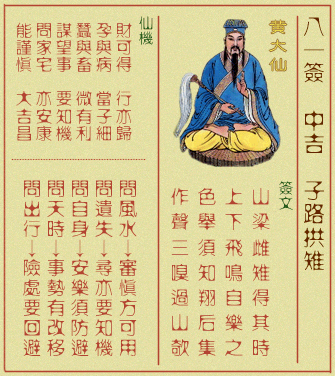 八一簽　中吉　子路拱雉
黃大仙
簽文
山梁雌雉得其時
上下飛鳴自樂之
色舉須知翔后集
作聲三嗅過山欹
仙機
財可得　行亦歸
孕與病　當子細
蠶與畜　微有利
謀望事　要知機
問家宅　亦安康
能謹慎　大吉昌
問風水↓審慎方可用
問遺失↓尋亦要知機
問自身↓安樂須防避
問天時↓事勢有改移
問出行↓險處要回避